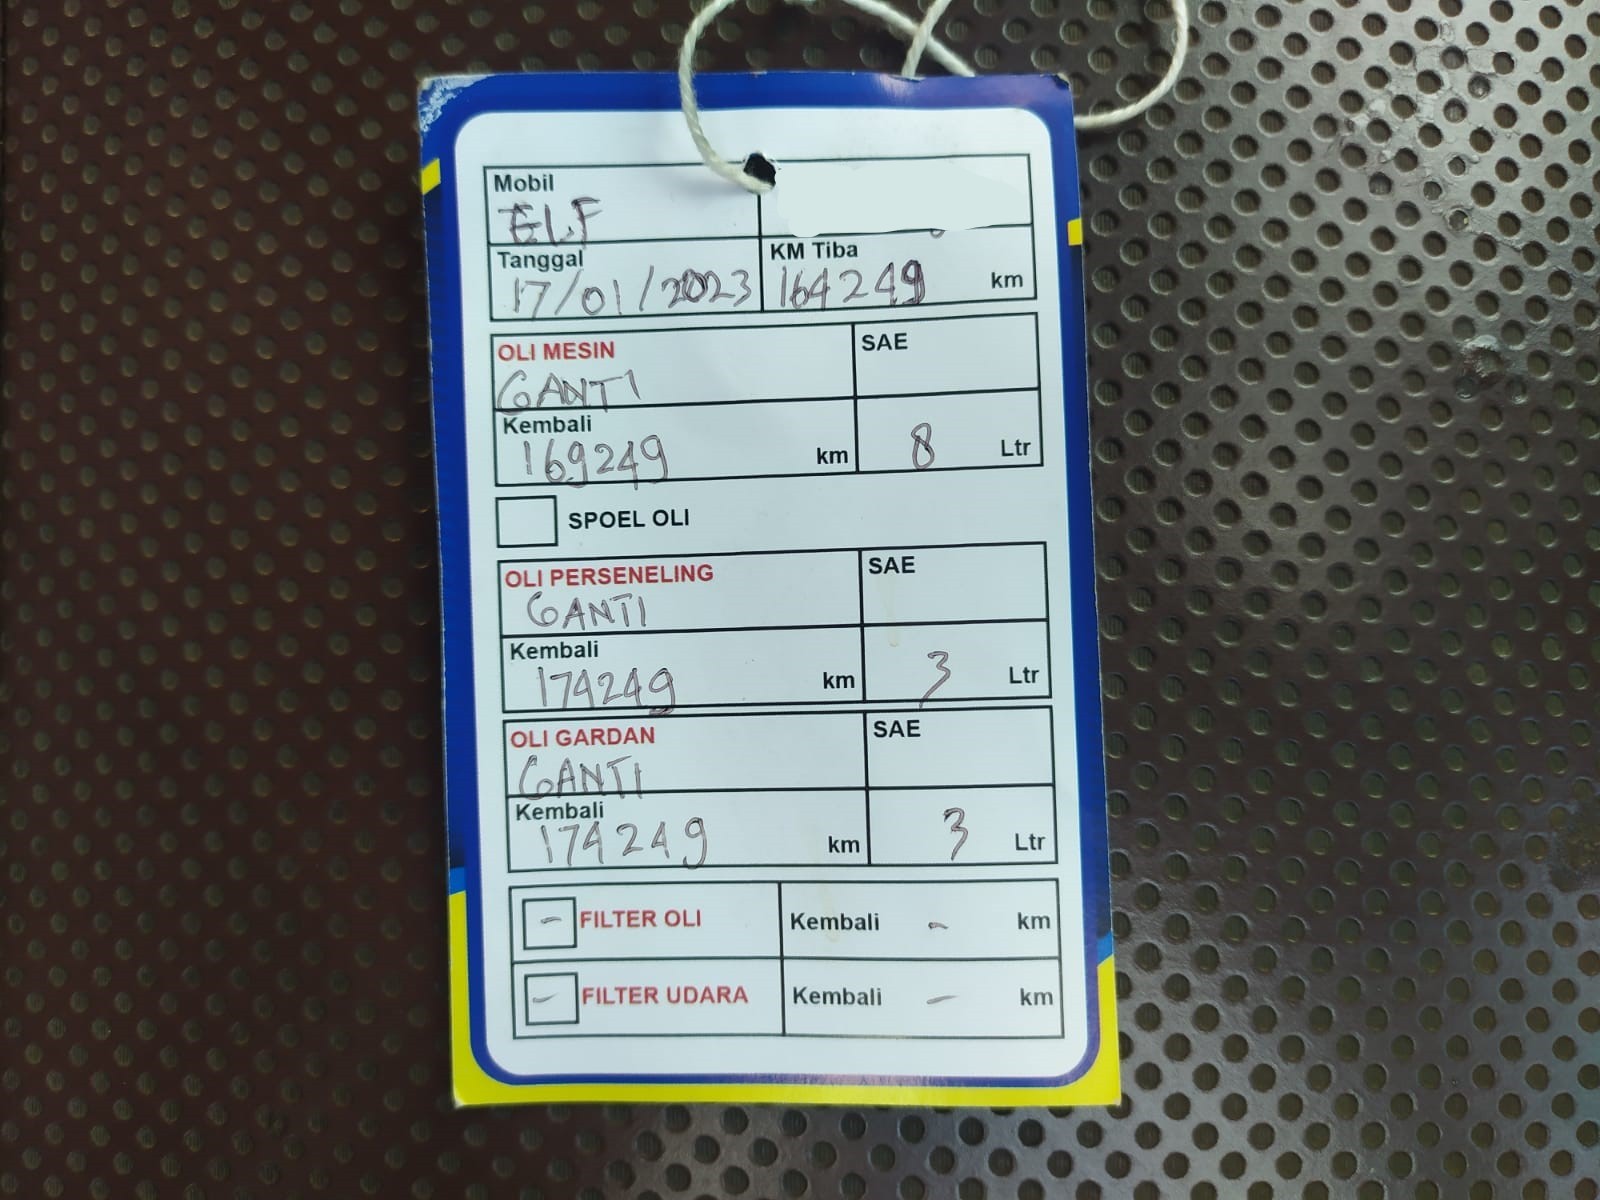 Mobil
ELF
Tanggal
17/01/2023
KM Tiba
164249 km
OLI MESIN
GANTI
SAE
Kembali
169249 km
8 Ltr
SPOEL OLI
OLI PERSENELING
GANTI
SAE
Kembali
174249 km
3 Ltr
OLI GARDAN
GANTI
SAE
Kembali
174249 km
3 Ltr
- FILTER OLI
Kembali - km
- FILTER UDARA
Kembali - km